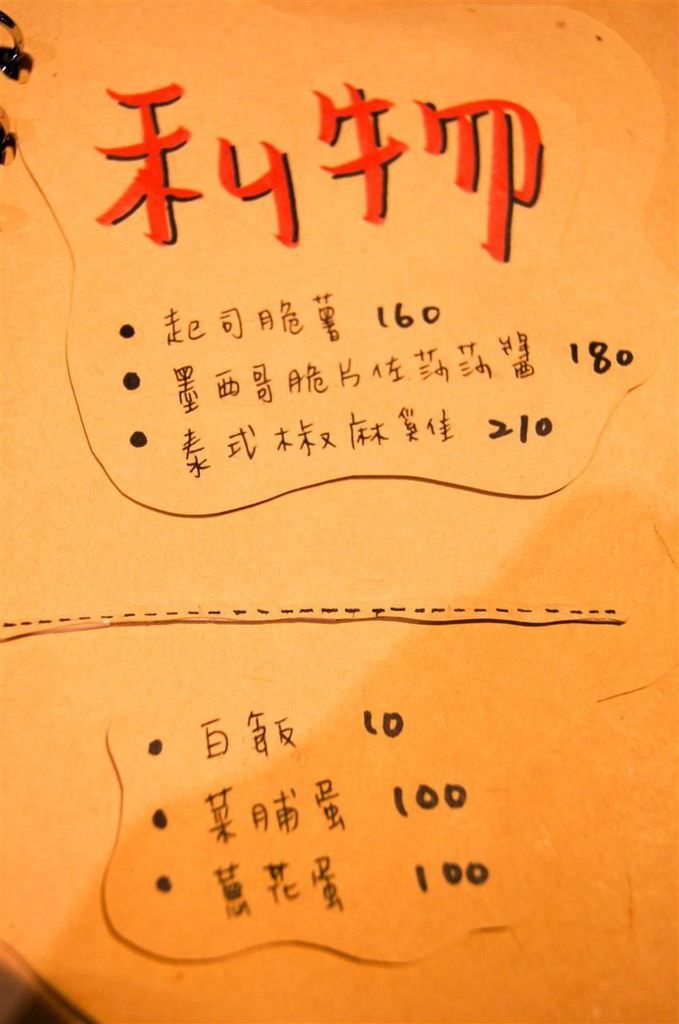 私物
• 起司脆薯 160
• 墨西哥脆片佐莎莎醬 180
• 泰式椒麻雞 210
• 白飯 10
• 菜脯蛋 100
• 蔥花蛋 100